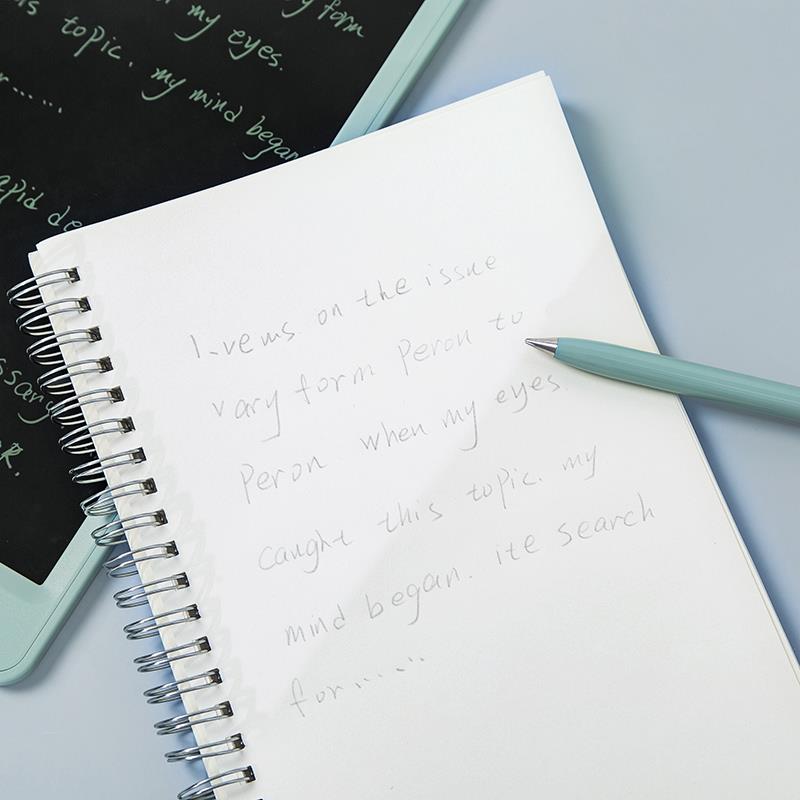 topic. my eyes.
my mind began
apid de
ssary
R.
on the issue
vary form Peron to
Peron. when my eyes.
caught this topic. my
mind began. ite search
for......